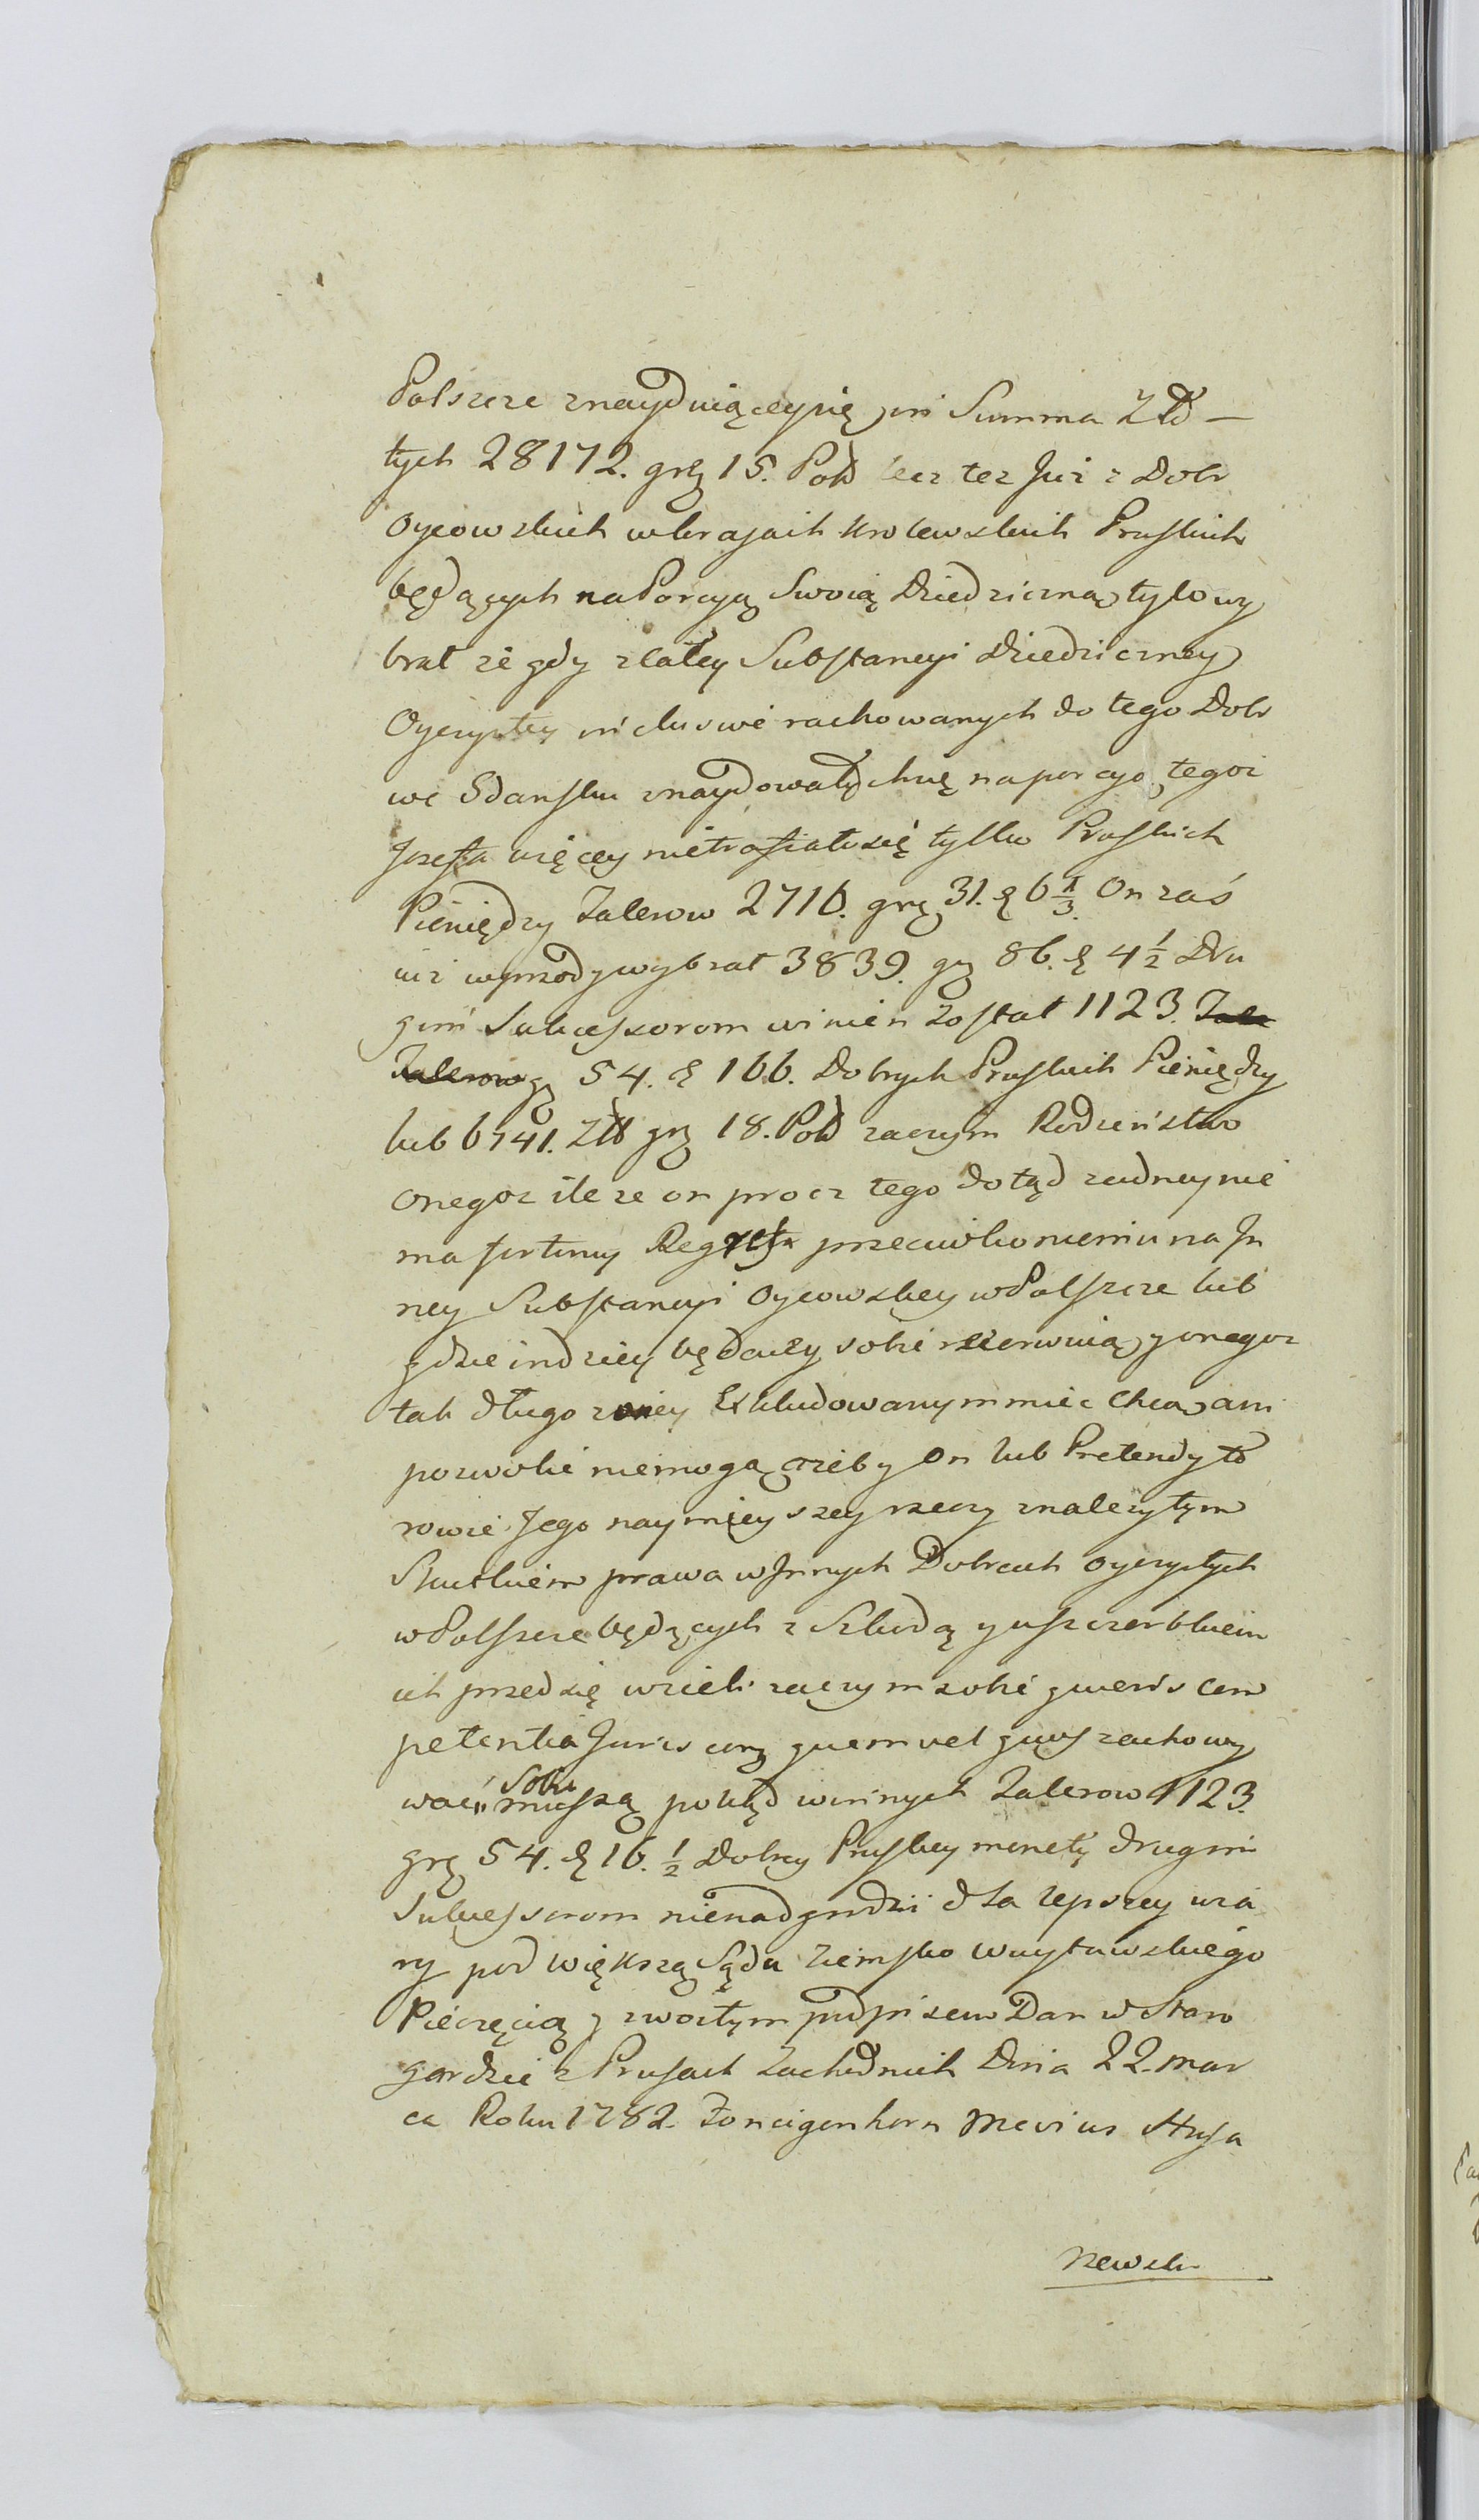 Polszcze znayduiącey się in Summa Zło—
tych 28172. grz 15. Pol lecz tez Juz z Dobr
Oycowskich w krajach Krolewskich Pruskich
będących na Porcyą Swoią Dziedziczną tylo wy
brał ze gdy z całey Substancyi dziedziczney
Oyczystey inclusive rachowanych do tego Dobr
we Gdansku znaydowałych się na porcyą tegoz
Jozefa więcey nietrafiało się tylko Pruskich
Pieniędzy Talerow 2716. grz 31. & 6 1/3. On zaś
iuz wprzody wybrał 3839. grz 86. & 4 1/2 Dru
gim Sukcessorom winien został 1123. Tale
Talerow grz 54. & 166. Dobrych Pruskich Pieniędzy
lub 6741. Zł grz 18. Pol zaczym Rodzeństwo
onegoz ile ze on procz tego dotąd zadney nie
ma fortuny Regress przeciwko niemu na In
ney Substancyi Oycowskiey w Polszcze lub
gdzie indziey będącey sobie rezerwuią y onegoz
tak długo z oney Exkludowanym miec chcą ani
pozwolic niemogą zeby On lub Pretendyto
rowie Jego naymieyszey rzeczy znalezytym
Skutkiem prawa w Innych Dobrach oyczystych
w Polszcze będących z Szkodą y uszczerbkiem
ich przedsię wzieli zaczym sobie quenvis com
petentia Juris cuz quemvel quos zachowy
wać" Sobie muszą pokąd winnych Talerow 1123.
grz 54. & 16. 1/2 Dobrey Pruskiey monety drugim
Sukcessorom nienadgrodzi dla lepszey wia
ry pod większą Sądu Ziemsko Woystowskiego
Pieczęcią y zwyczaynym podpisem Dan w Staro
gardzie w Prusach Zachodnich Dnia 22. mar
ca Roku 1782. Zoneigenhorn Mevius Husa
rzewski